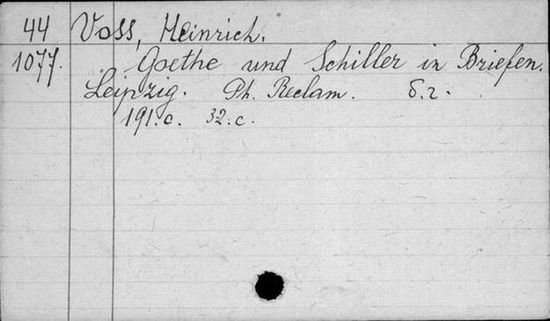 44 Voss, Heinrich.
1077. Goethe und Schiller in Briefen.
Leipzig. Ph. Reclam. б.г.
191.c. 32.c.